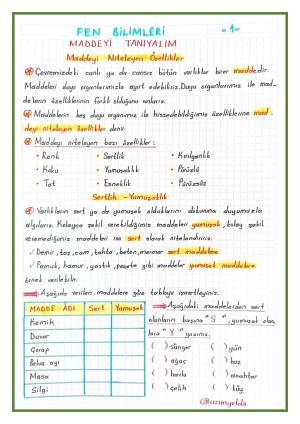 FEN BİLİMLERİ
"1"
MADDEYİ TANIYALIM
Maddeyi Niteleyen Özellikler
Çevremizdeki canlı ya da cansız bütün varlıklar birer maddedir.
Maddeleri duyu organlarımızla ayırt edebiliriz. Duyu organlarımız ile mad-
delerin özelliklerinin farklı olduğunu anlarız.
Maddelerin beş duyu organımız ile hissedebildiğimiz özelliklerine mad-
deyi niteleyen özellikler denir.
Maddeyi niteleyen bazı özellikler:
• Renk • Sertlik • Kırılganlık
• Koku • Yumuşaklık • Pürüzlü
• Tat • Esneklik • Pürüzsüz
Sertlik - Yumuşaklık
Varlıkların sert ya da yumuşak olduklarını dokunma duyumuzla
algılarız. Kolayca şekil verebildiğimiz maddeleri yumuşak, kolay şekil
veremediğimiz maddeleri ise sert olarak nitelendiririz.
✓ Demir, taş, cam, tahta, beton, mermer sert maddelere
✓ Pamuk, hamur, yastık, peçete gibi maddeler yumuşak maddelere
örnek verilebilir.
Aşağıda verilen maddelere göre tabloyu işaretleyiniz.
MADDE ADI Sert Yumuşak
Kemik
Duvar
Çorap
Peluş ayı
Masa
Silgi
Aşağıdaki maddelerden sert
olanların başına "S", yumuşak olan
lara "Y" yazınız.
( ) sünger ( ) yün
( ) ağaç ( ) buz
( ) havlu ( ) anahtar
( ) çelik ( ) tüy